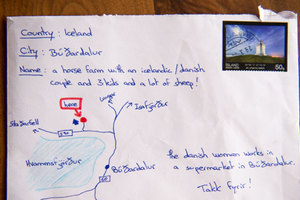 Country : Iceland
City : Búðardalur
Name : a horse farm with an icelandic/danish
couple and 3 kids and a lot of sheep!
ÍSLAND
50g
here
Ísafjörður
Búðardalur
60
the danish woman works in
a supermarket in Búðardalur.
Takk fyrir!